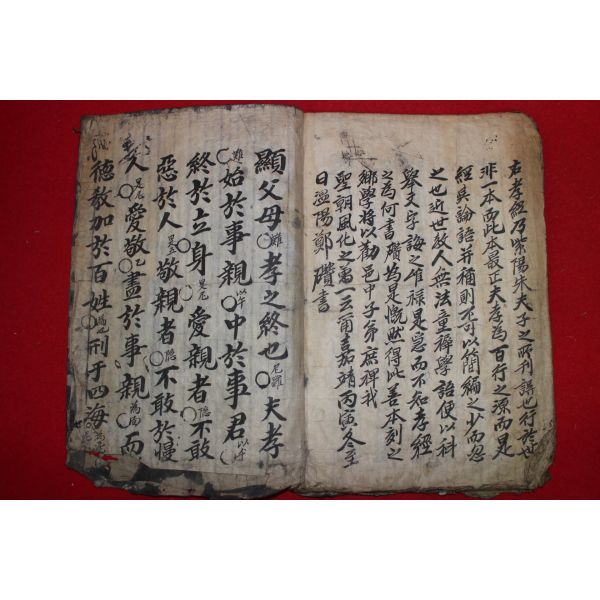 右孝經乃紫陽朱夫子之所刊誤也行於世
非一本而此本最正夫孝為百行之源而是
經與論語并稱則不可以簡編之少而忽
之也近世敎人無法童穉學語便以科
擧文字誨之唯祿是急而不知孝經
之為何書礸為是慨然得此善本刻之
鄉學將以勸邑中子弟庶裨我
聖朝風化之萬一云爾嘉靖丙寅冬至
日溫陽鄭礸書
顯父母難○孝之終也尼羅○夫孝
難○始於事親以午○中於事君以午○
終於立身是尼○愛親者隱○不敢
惡於人是尼○敬親者隱○不敢於慢
人是尼○愛敬乙○盡於事親為面○而
德敎加於百姓○刑于四海